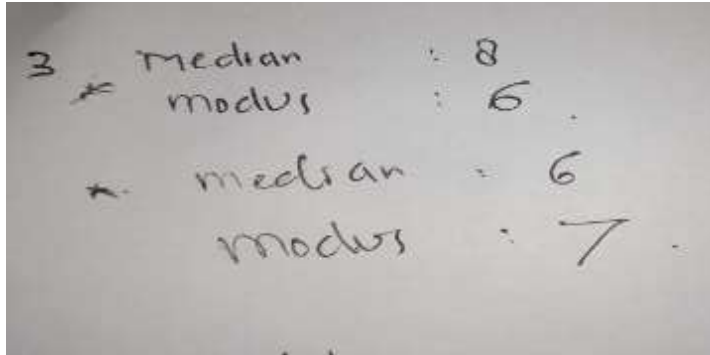 3 median : 8
* modus : 6.
*. median : 6
modus : 7.